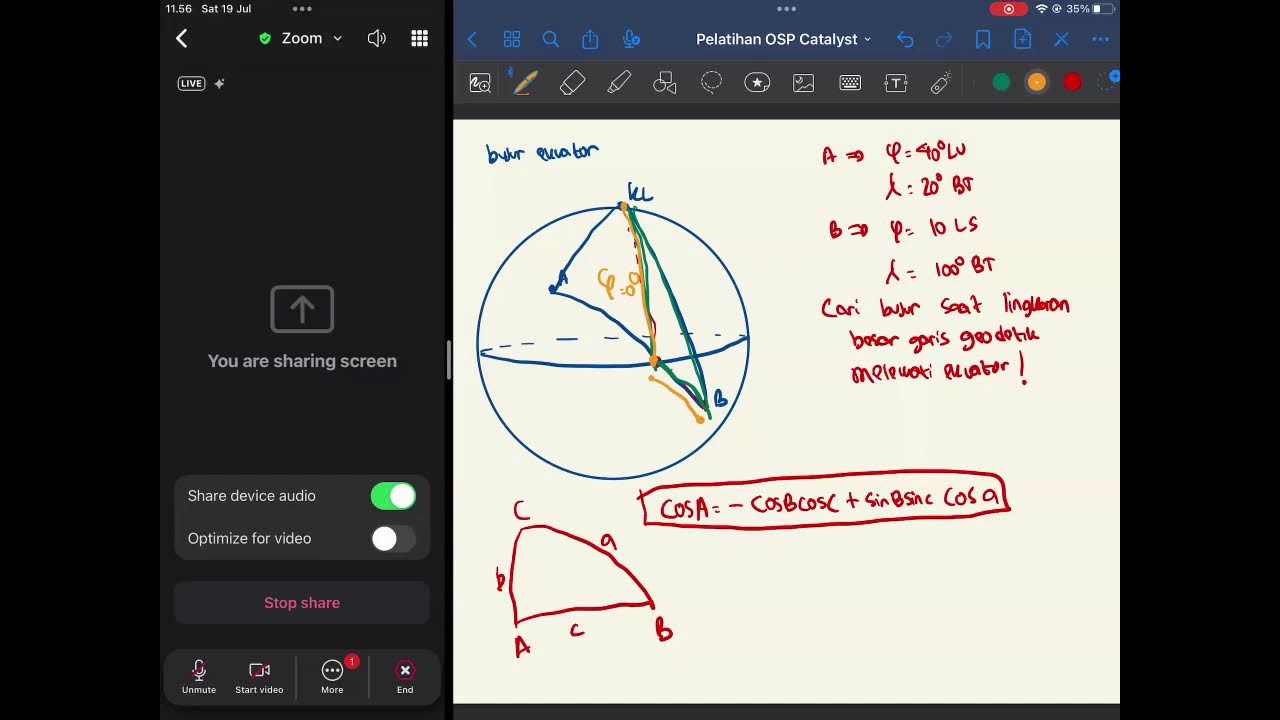 11.56 Sat 19 Jul
Zoom
LIVE
You are sharing screen
Share device audio
Optimize for video
Stop share
1
Unmute
Start video
More
End
35%
Pelatihan OSP Catalyst
T
busur ekuator
KU
A
φ=0°
B
A ⇒ φ = 40° LU
λ = 20° BT
B ⇒ φ = 10 LS
λ = 100° BT
Cari busur saat lingkaran
besar garis geodetik
melewati ekuator!
cosA = - cosBcosC + sinBsinc cos a
C
a
b
c
A
B